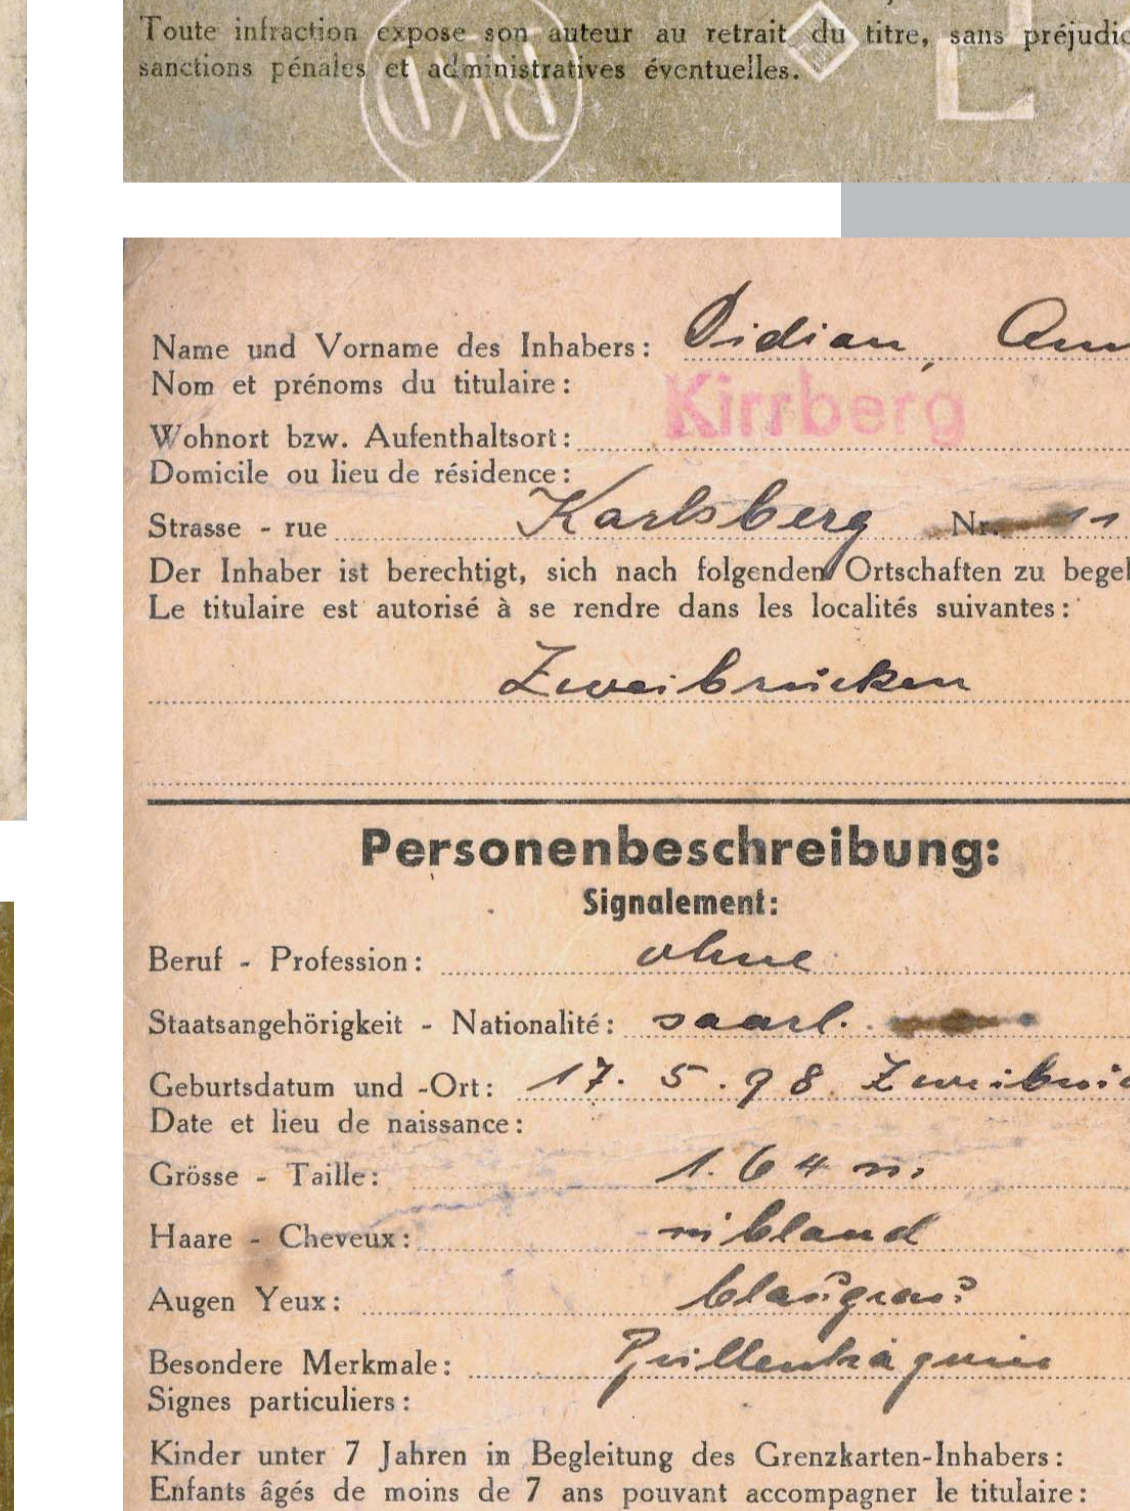 Toute infraction expose son auteur au retrait du titre, sans préjudic
sanctions pénales et administratives éventuelles.
RKD
Name und Vorname des Inhabers: Didian, Ann
Nom et prénoms du titulaire:
Kirrberg
Wohnort bzw. Aufenthaltsort:
Domicile ou lieu de résidence:
Strasse - rue Karlsberg Nr. 11
Der Inhaber ist berechtigt, sich nach folgenden Ortschaften zu begeb
Le titulaire est autorisé à se rendre dans les localités suivantes:
Zweibrücken
Personenbeschreibung:
Signalement:
Beruf - Profession: ohne
Staatsangehörigkeit - Nationalité: saarl.
Geburtsdatum und -Ort: 17. 5. 98 Zweibrüc
Date et lieu de naissance:
Grösse - Taille: 1.64 m
Haare - Cheveux: blond
Augen Yeux: blaugrau
Besondere Merkmale: Brillenträgerin
Signes particuliers:
Kinder unter 7 Jahren in Begleitung des Grenzkarten-Inhabers:
Enfants âgés de moins de 7 ans pouvant accompagner le titulaire: